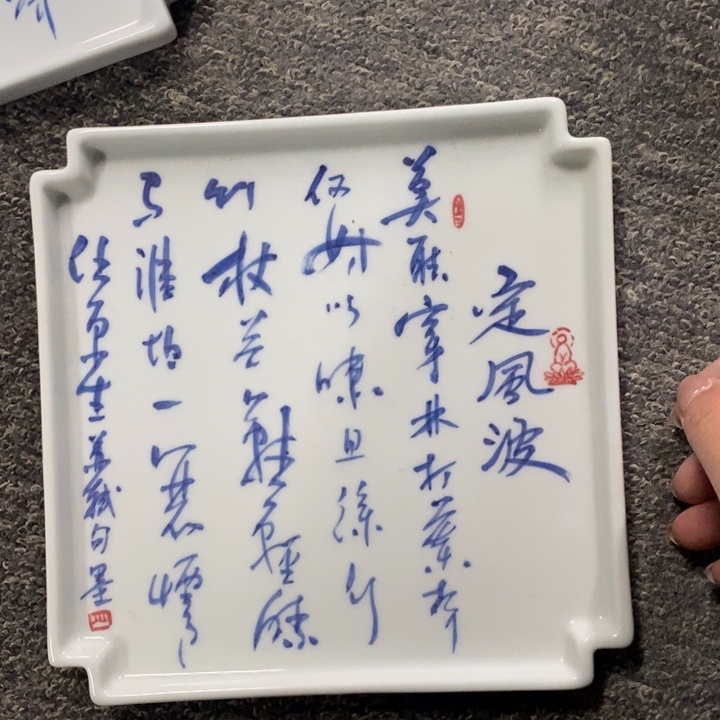 定風波
莫聴穿林打葉声
何妨吟嘯且徐行
竹杖芒鞋軽勝
马誰怕一蓑烟雨
任平生苏軾句墨